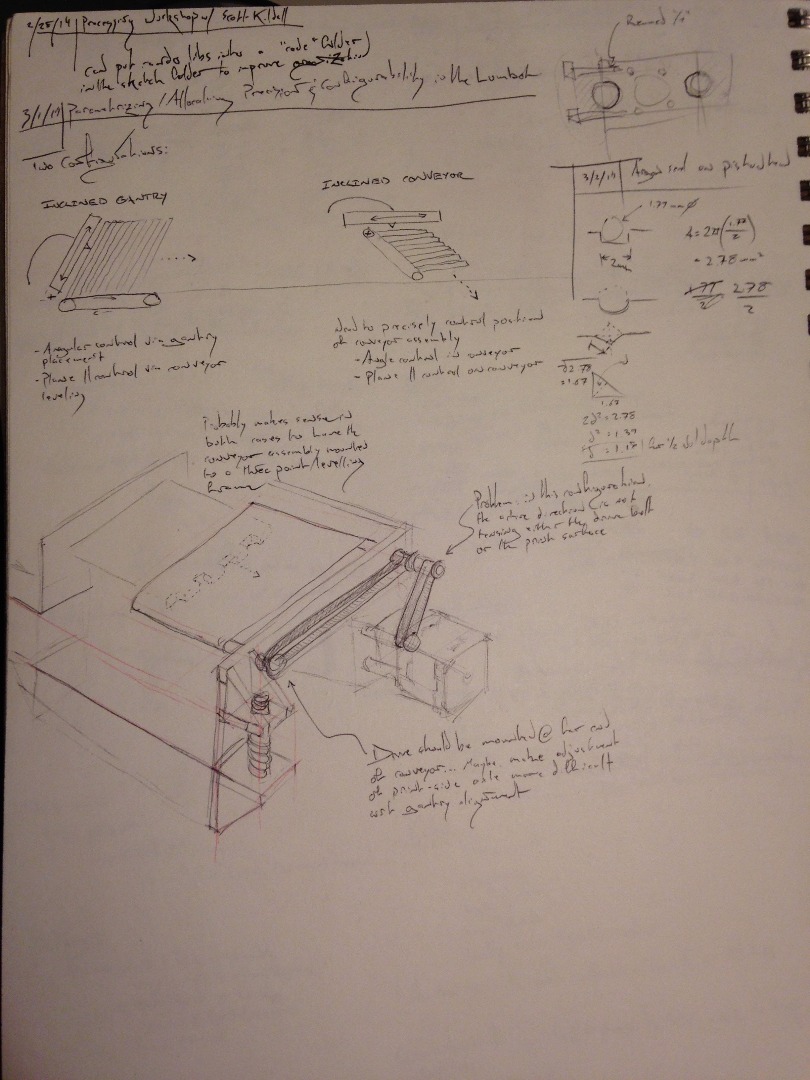 2/25/14 Processing Workshop w/ Scott Kildall
can put reader libs into a "code" folder
in the sketch folder to improve
3/1/14 Parametrizing / Allocating Precision & Configurability in the Lumbot
Two Configurations:
INCLINED GANTRY
- Angular control via gantry
placement
- Planar // control via conveyor
leveling
INCLINED CONVEYOR
Need to precisely control position
of conveyor assembly
- Angle control in conveyor
- Planar // control on conveyor
Probably makes sense in
both cases to have the
conveyor assembly mounted
to a three point/levelling
frame
Problem: in this configuration,
the drive direction is not
tensing either the drive belt
or the print surface
Drive should be mounted @ far end
of conveyor... Maybe makes adjustment
of print-side axle more difficult
wrt gantry alignment
Reamed 1/4"
3/2/14 seal on piston head
1.77 mm ø
A = 2π(1.77/2)
= 2.78 mm²
2mm
2.78
2
√2.78
= 1.67
1.67
2d² = 2.78
d² = 1.39
d = 1.17 for % depth